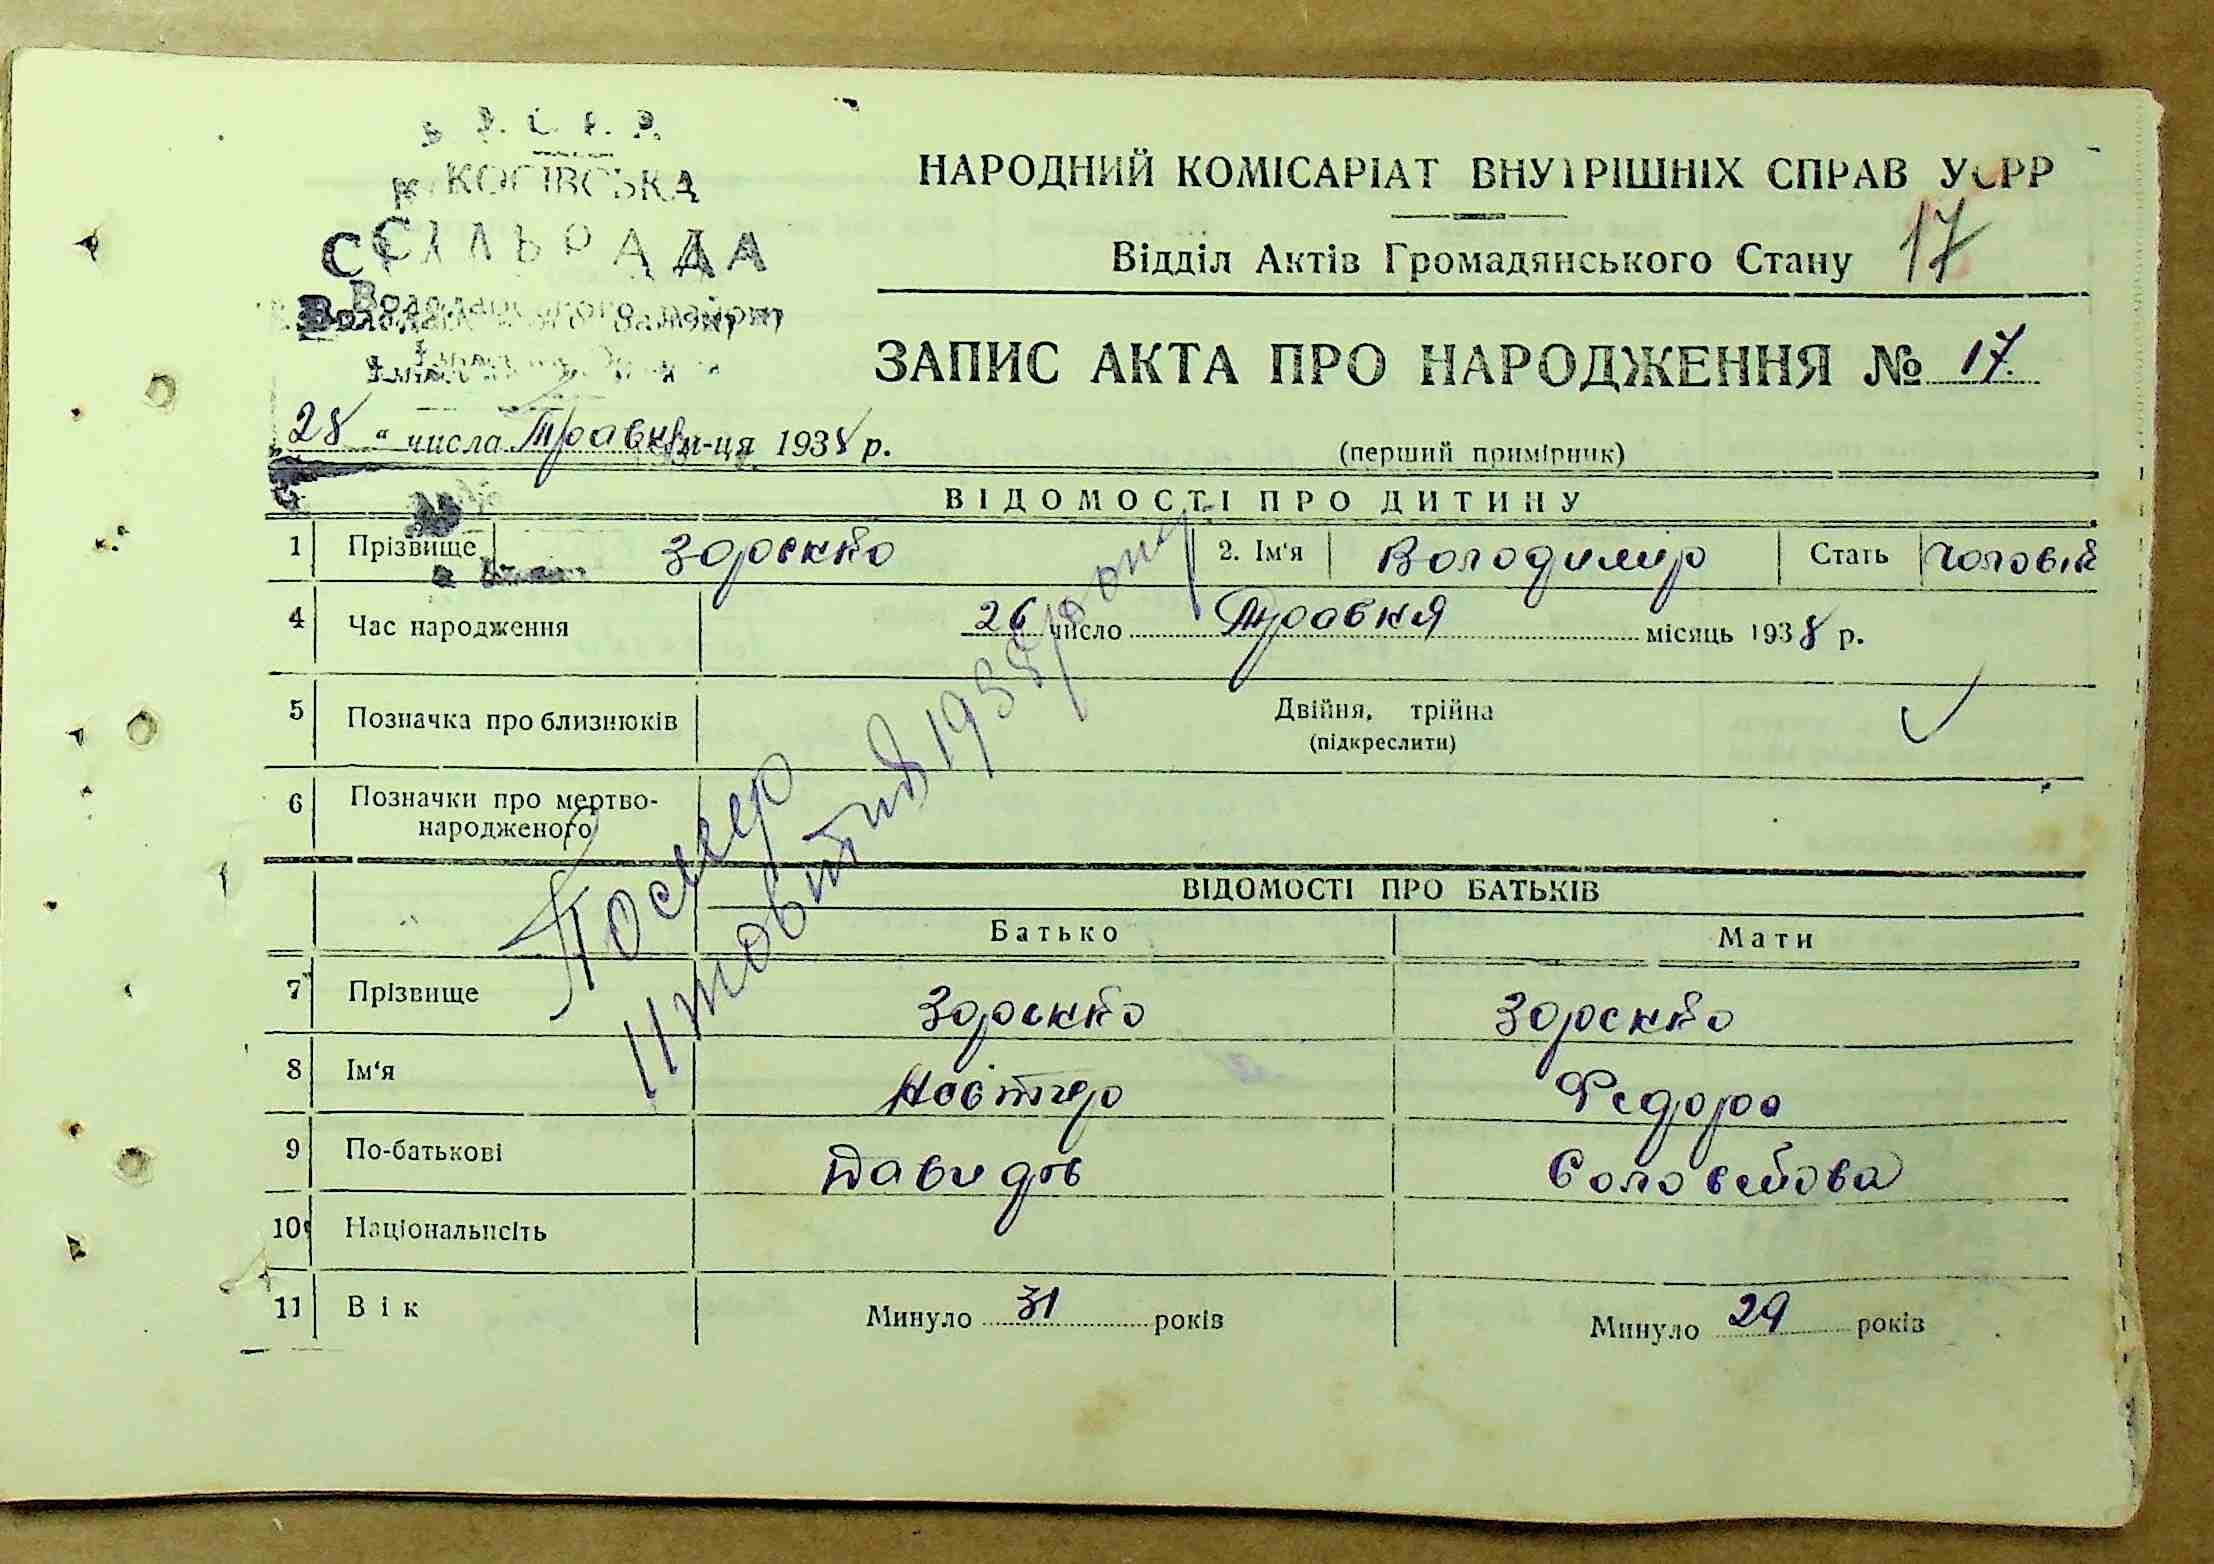 У. Р. С. Р.
КОСІВСЬКА
СІЛЬРАДА
Володарського району
НАРОДНИЙ КОМІСАРІАТ ВНУТРІШНІХ СПРАВ УСРР
17
Відділ Актів Громадянського Стану
ЗАПИС АКТА ПРО НАРОДЖЕННЯ № 17.
28 " числа Травня м-ця 1938 р.
(перший примірник)
ВІДОМОСТІ ПРО ДИТИНУ
1 Прізвище 2. Ім'я Володимир Стать чоловіч
4 Час народження 26 число Травня місяць 1938 р.
5 Позначка про близнюків Двійня, трійна
(підкреслити)
6 Позначки про мертво-
народженого
Помер
11 жовтня 1938 року
ВІДОМОСТІ ПРО БАТЬКІВ
Батько Мати
7 Прізвище
8 Ім'я Федора
9 По-батькові Давидов Соловейова
10 Національність
11 Вік Минуло 31 років Минуло 29 років